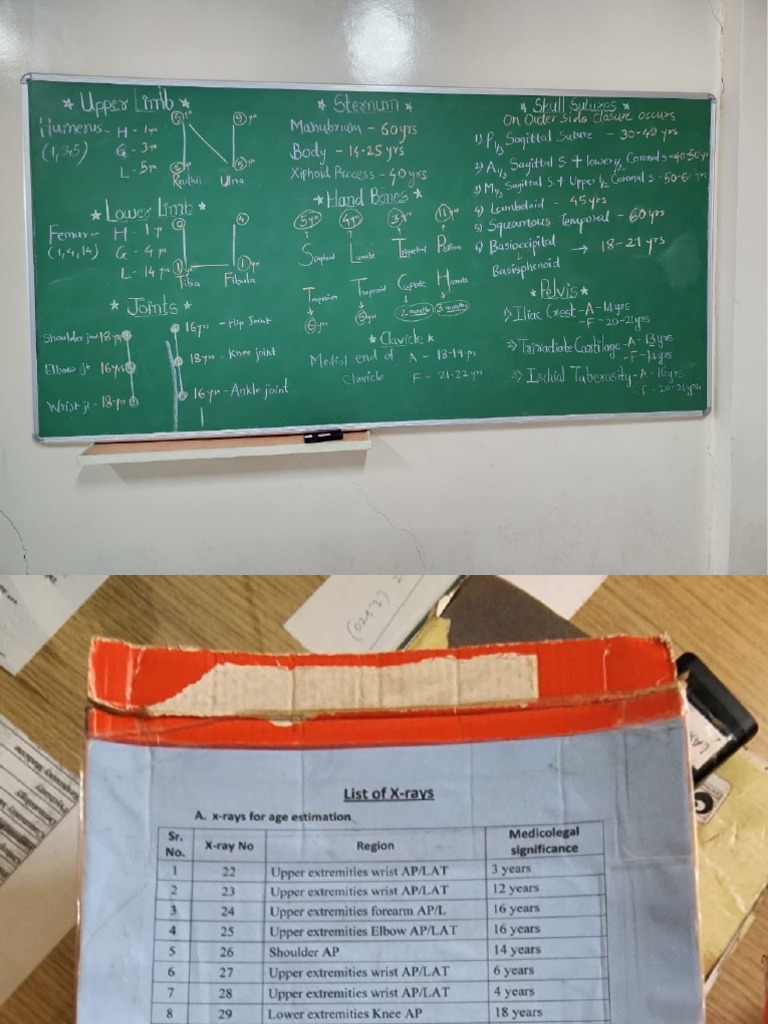 ★ Upper Limb ★
Humerus - H - 1yr
(1,3,5) G - 3yr
L - 5yr
5 yr
2 yr
Radius Ulna
★ Lower Limb ★
Femur - H - 1 yr
(1,4,14) G - 4 yr
L - 14 yr
Tibia Fibula
★ Joints ★
Shoulder jt 18 yr
Elbow jt 16yr
Wrist jt - 18 yr
16yr - Hip Joint
18yr - Knee joint
16yr - Ankle joint
★ Sternum ★
Manubrium - 60yrs
Body - 14-25 yrs
Xiphoid Process - 40yrs
★ Hand Bones ★
5 yr 4 yr 3 yr 11 yr
Scaphoid Lunate Triquetral Pisiform
Trapezium Trapezoid Capitate Hamate
6 yr 5 yr 2 months 3 months
★ Clavicle ★
Medial end of A - 18-19 yrs
Clavicle F - 21-22 yrs
★ Skull Sutures ★
On Outer side closure occurs
1) P 1/3 Sagittal Suture - 30-40 yrs
2) A 1/3 Sagittal S. + lower 1/2 Coronal S - 40-50 yr
3) M 1/3 Sagittal S + Upper 1/2 Coronal S - 50-60 yrs
4) Lambdoid - 45 yrs
5) Squamous Temporal - 60yrs
6) Basioccipital → 18-21 yrs
Basisphenoid
★ Pelvis ★
1) Iliac Crest - A - 14yrs
- F - 20-21yrs
2) Triradiate Cartilage - A - 13yrs
- F -
3) Ischial Tuberosity - A - 16yrs
- F - 20-21 yrs
List of X-rays
A. x-rays for age estimation
Sr. No. X-ray No Region Medicolegal significance
1 22 Upper extremities wrist AP/LAT 3 years
2 23 Upper extremities wrist AP/LAT 12 years
3 24 Upper extremities forearm AP/L 16 years
4 25 Upper extremities Elbow AP/LAT 16 years
5 26 Shoulder AP 14 years
6 27 Upper extremities wrist AP/LAT 6 years
7 28 Upper extremities wrist AP/LAT 4 years
8 29 Lower extremities Knee AP 18 years